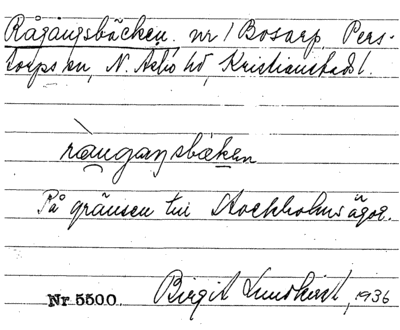 Rågångsbäcken. nr 1 Bosarp, Pers-
torps sn, N. Åsbo hd, Kristianstads l.
råu̯gaŋsbäken
På gränsen till Stockholms ägor.
Birgit Lundkvist, 1936
Nr 5500